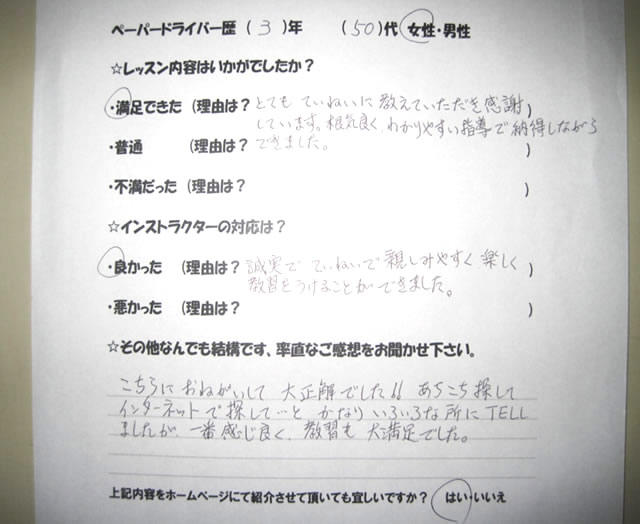 ペーパードライバー歴 (3)年 (50)代 女性・男性
☆レッスン内容はいかがでしたか?
・満足できた (理由は? とても ていねいに 教えていただき感謝)
しています。根気良く、わかりやすい指導で納得しながら
・普通 (理由は? できました。 )
・不満だった (理由は? )
☆インストラクターの対応は?
・良かった (理由は? 誠実で ていねいで 親しみやすく 楽しく )
教習をうけることができました。
・悪かった (理由は? )
☆その他なんでも結構です、率直なご感想をお聞かせ下さい。
こちらにおねがいして 大正解でした!! あちこち探して
インターネットで探して…と かなりいろいろな所にTELL
ましたが、一番感じ良く、教習も 大満足でした。
上記内容をホームページにて紹介させて頂いても宜しいですか? はい・いいえ